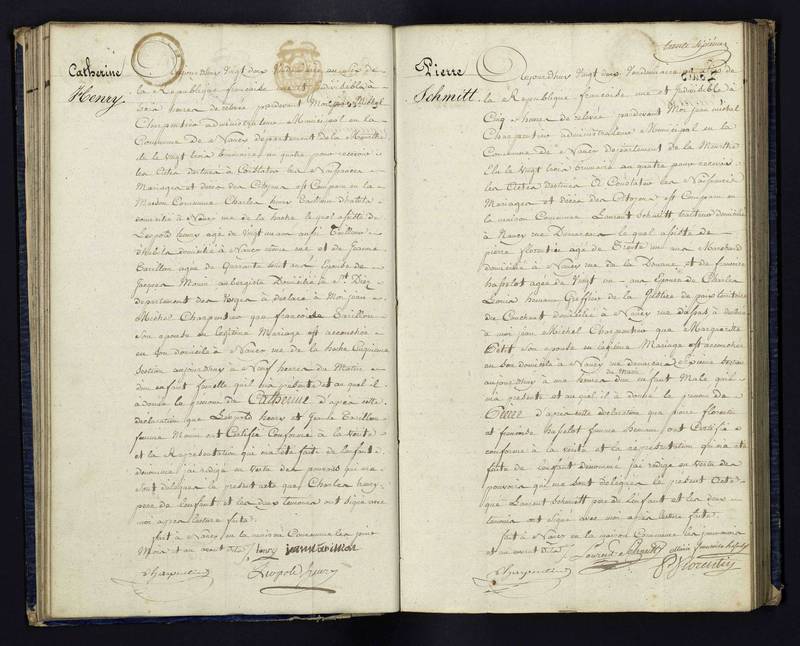 Catherine
Henry
aujourd'huy Vingt deux Vendemiaire an Six de
la République française une et Indivisible à
trois heures de relevée pardevant Moi jean Michel
Charpentier administrateur Municipal en la
Commune De Nancy departement de la Meurthe
élu le vingt trois brumaire an quatre pour recevoir
les Actes destinés à Constater les Naissances
Mariages et deces des Citoyens est Comparu en la
Maison Commune Charles henry
domicilié à Nancy rue de la hache lequel assisté de
Léopold henry agé de Vingt un ans aussi
domicilié à Nancy même rue et de Jeanne
Tarillon agée de Quarante ans Epouse de
Jacques Monin aubergiste Domicilié à St. Diez
departement des Vosges à déclaré à Moi jean
Michel Charpentier que françoise Tarillon
Son épouse en légitime Mariage est accouchée
en Son domicile à Nancy rue de la hache Cinquieme
Section aujourd'huy à Neuf heures du Matin
d'un enfant femelle qu'il m'a présenté et auquel il
a donné le prénom de Catherine d'après cette
déclaration que Léopold henry et Jeanne Tarillon
femme Monin ont Certifié Conforme à la Vérité
et la Représentation qui m'a été faite de l'enfant
denommé j'ai rédigé en Vertu des pouvoirs qui me
Sont délégués le présent acte que Charles henry
pere de l'enfant et les deux temoins ont Signé avec
moi après lecture faite.
fait à Nancy en la maison Commune les jour
Mois et an avant dits. henry jeanne tarillon
Charpentier Léopold henry
Pierre
Schmitt
aujourd'huy Vingt deux Vendemiaire an Six de
la République française une et Indivisible à
Cinq heures de relevée pardevant Moi jean michel
Charpentier administrateur Municipal en la
Commune De Nancy departement de la Meurthe
Elu le Vingt trois brumaire an quatre pour recevoir
les Actes destinés à Constater les Naissances
Mariages et deces des Citoyens est Comparu en
la maison Commune Laurent Schmitt traiteur domicilié
à Nancy rue lequel assisté de
pierre florentin agé de Trente un ans Marchand
domicilié à Nancy rue de la Douane et de francoise
hasselot agée de Vingt un ans Epouse de Charles
Louis Greffier de la Justice de paix
du Couchant domiciliée à Nancy à déclaré
à moi jean Michel Charpentier que Marguerite
Petit Son epouse en légitime Mariage est accouchée
en Son domicile à Nancy Section
aujourd'huy à une heure du matin d'un enfant Male qu'il
m'a présenté et auquel il à donné le prenom de
Pierre d'après cette déclaration que pierre florentin
et francoise hasselot femme ont Certifié
conforme à la vérité et la représentation qui m'a été
faite de l'enfant denommé j'ai rédigé en vertu des
pouvoirs qui me sont délégués le présent Acte
que Laurent Schmitt pere de l'enfant et les deux
temoins ont Signé avec moi après lecture faite.
fait à Nancy en la maison Commune les jour mois
et an avant dits. Laurent Schmitt
Charpentier P Florentin